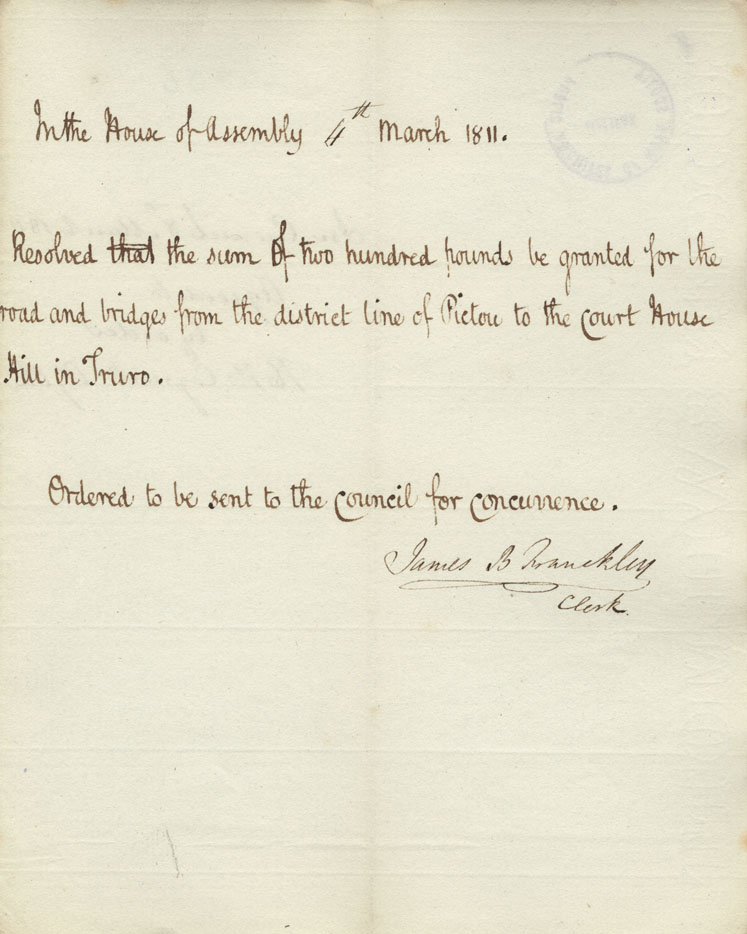 In the House of Assembly 4th March 1811.
Resolved that the sum of two hundred pounds be granted for the
road and bridges from the district line of Pictou to the Court House
Hill in Truro.
Ordered to be sent to the Council for concurrence.
James B Franckley
Clerk.